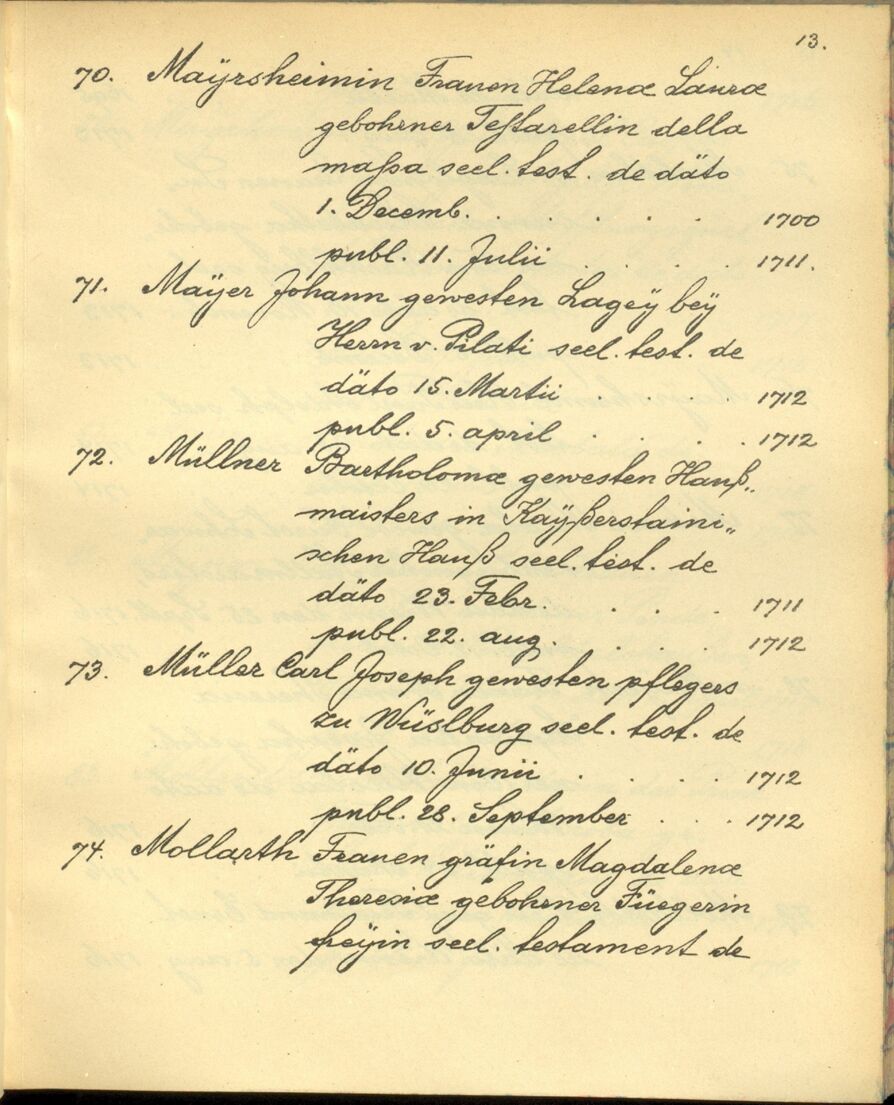 13.
70. Maÿrsheimin Frauen Helenæ Lauræ
gebohrner Testarellin della
massa seel. test. de däto
1. Decemb. . . . . . 1700
publ. 11. Julii . . . . 1711.
71. Maÿer Johann gewesten Lageÿ beÿ
Herrn v. Pilati seel. test. de
däto 15. Martii . . . 1712
publ. 5. april . . . . 1712
72. Müllner Bartholomæ gewesten Hauß„
maisters in Kaÿßerstaini„
schen Hauß seel. test. de
däto 23. Febr. . . . . 1711
publ. 22. aug. . . . . 1712
73. Müller Carl Joseph gewesten pflegers
zu Wüslburg seel. test. de
däto 10. Junii . . . . 1712
publ. 28. September . . . 1712
74. Mollarth Frauen gräfin Magdalenæ
Theresiæ gebohrner Füegerin
freÿin seel. testament de